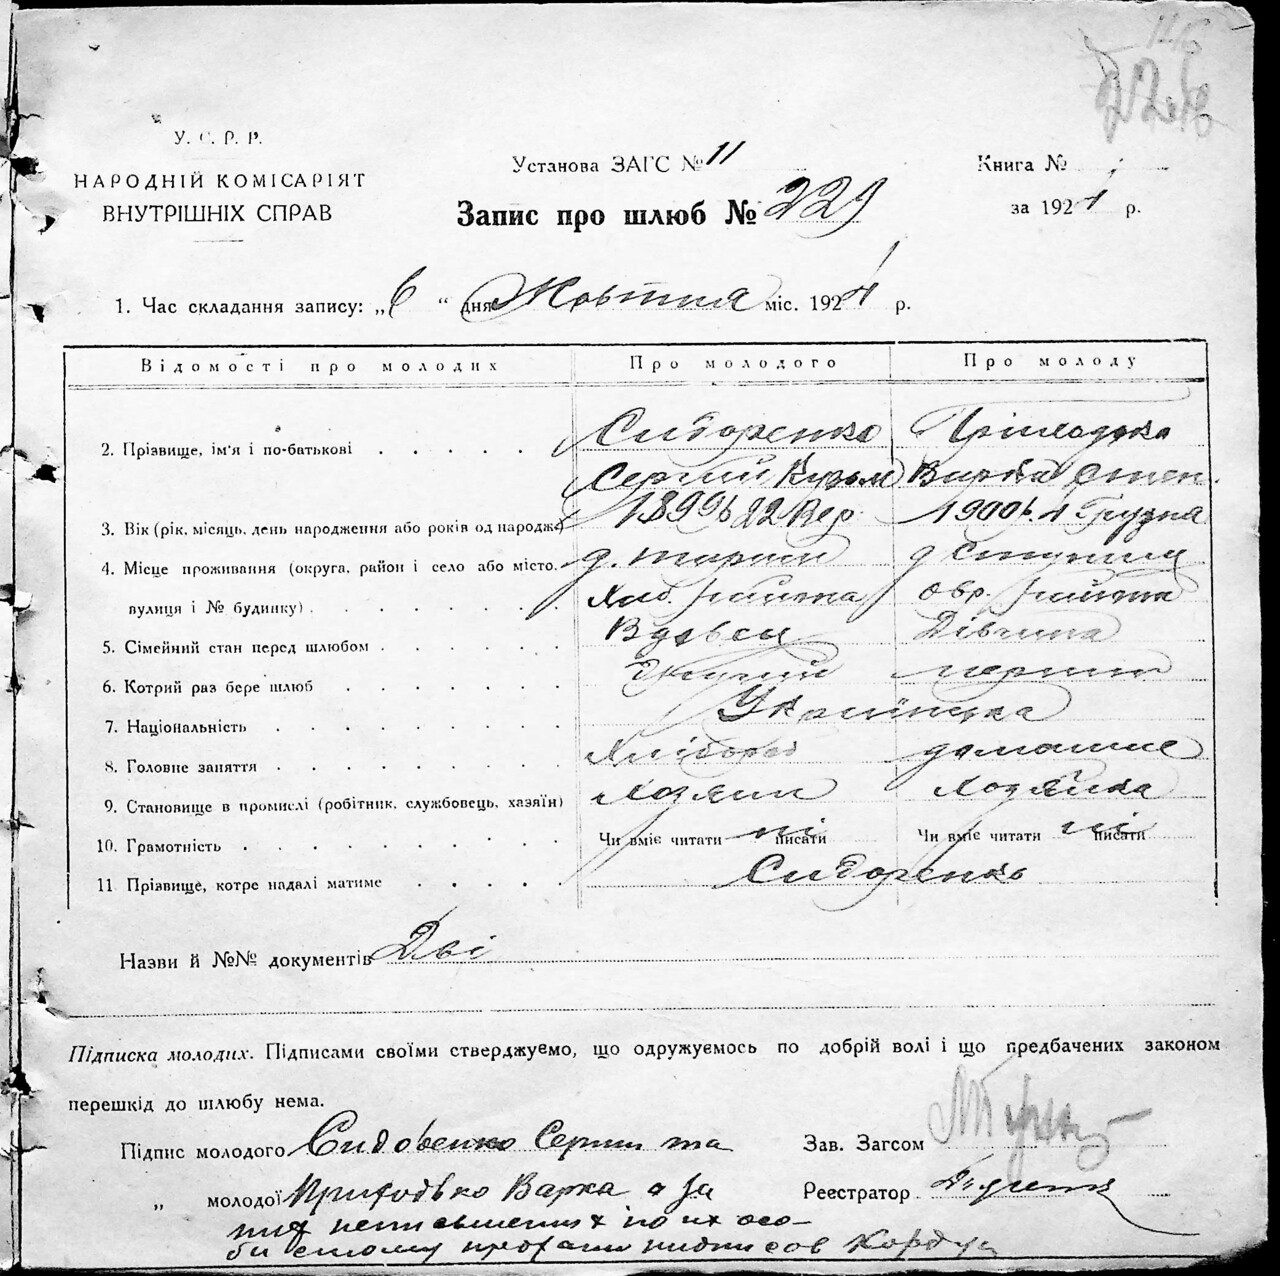 У. С. Р. Р.
НАРОДНІЙ КОМІСАРІЯТ
ВНУТРІШНІХ СПРАВ
Установа ЗАГС № 11
Запис про шлюб № 229
Книга №
за 1924 р.
1. Час складання запису: „6“ дня Жовтня міс. 1924 р.
Відомості про молодих Про молодого Про молоду
2. Прізвище, ім'я і по-батькові Сидоренко
Сергий Кузьм Варва Степ.
3. Вік (рік, місяць, день народження або років од народж.) 1899 22 Вер. 1900 4 Грудня
4. Місце проживання (округа, район і село або місто,
вулиця і № будинку) району району
5. Сімейний стан перед шлюбом Вдовец Дівчина
6. Котрий раз бере шлюб перший
7. Національність Українська
8. Головне заняття Хлібороб домашнє
9. Становище в промислі (робітник, службовець, хазяїн) Хозяин Хозяйка
10. Грамотність Чи вміє читати ні писати Чи вміє читати ні писати
11 Прізвище, котре надалі матиме Сидоренко
Назви й №№ документів Дві
Підписка молодих. Підписами своїми стверджуємо, що одружуємось по добрій волі і що предбачених законом
перешкід до шлюбу нема.
Підпис молодого Сидоренко Сергии та
Зав. Загсом
„ молодої Приходько Варка а за
Реєстратор
их осо-
би